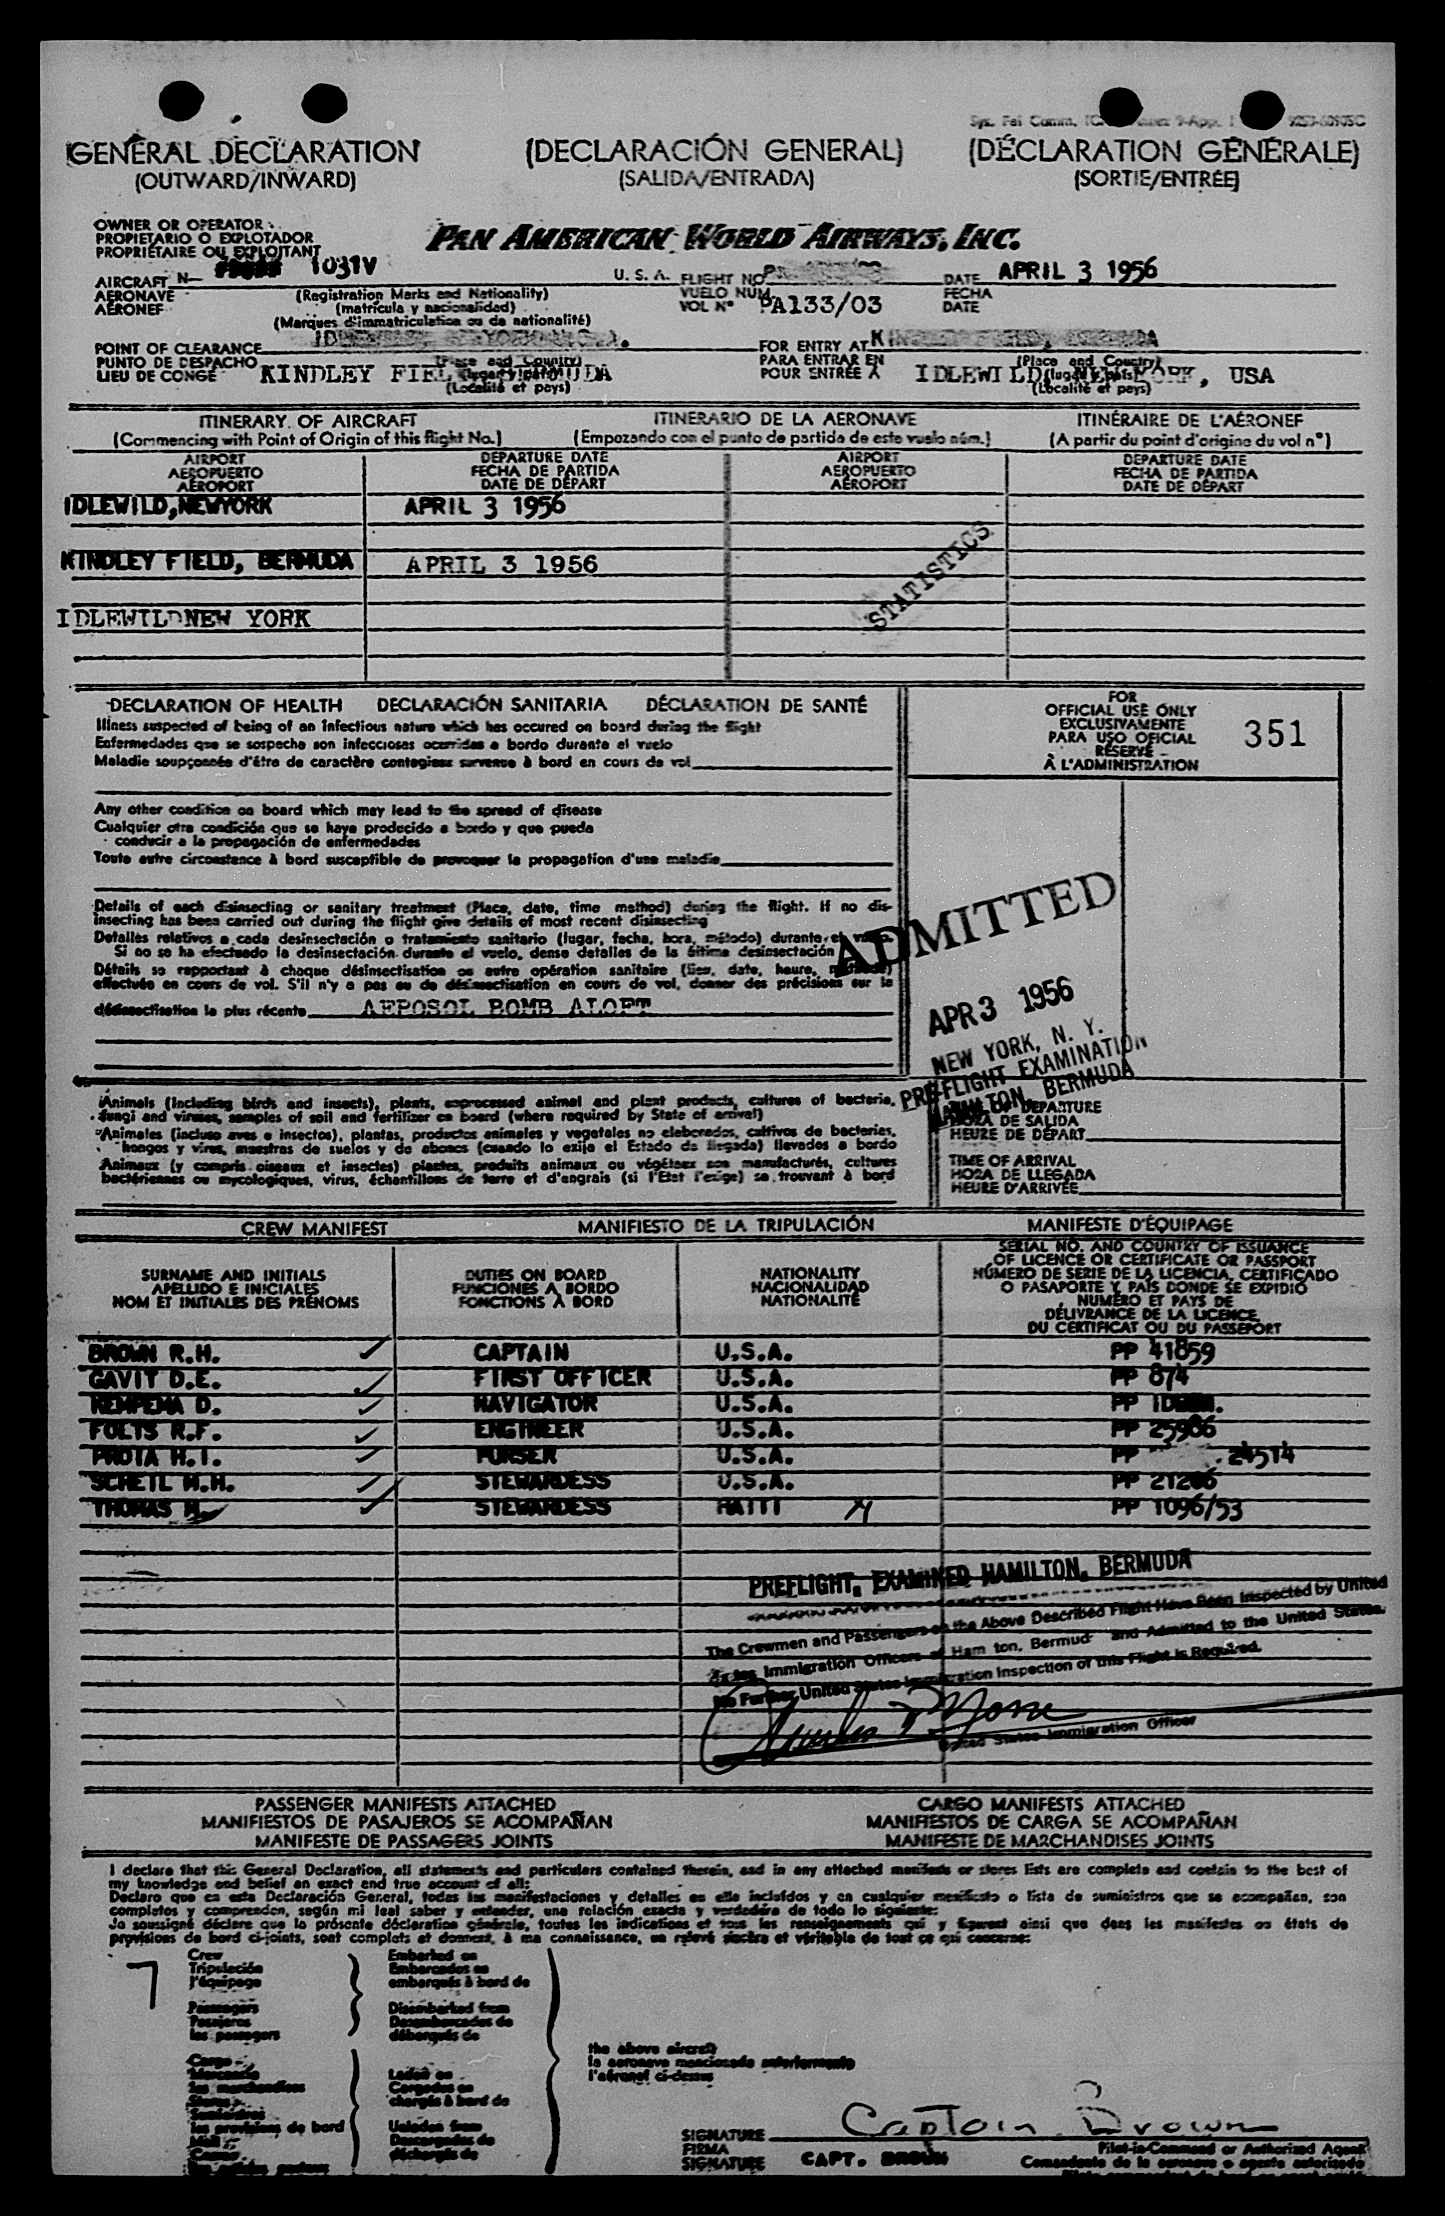 GENERAL DECLARATION (DECLARACIÓN GENERAL) (DÉCLARATION GÉNÉRALE)
(OUTWARD/INWARD) (SALIDA/ENTRADA) (SORTIE/ENTRÉE)
OWNER OR OPERATOR
PROPIETARIO O EXPLOTADOR
PROPRIÉTAIRE OU EXPLOITANT
PAN AMERICAN WORLD AIRWAYS, INC.
AIRCRAFT N- 1031V U. S. A. FLIGHT NO DATE APRIL 3 1956
AERONAVE (Registration Marks and Nationality) VUELO NUM. FECHA
AÉRONEF (matrícula y nacionalidad) VOL Nº PA133/03 DATE
(Marques d'immatriculation ou de nationalité)
POINT OF CLEARANCE FOR ENTRY AT
PUNTO DE DESPACHO (Place and Country) PARA ENTRAR EN (Place and Country)
LIEU DE CONGÉ KINDLEY POUR ENTRÉE À IDLEWILD, USA
(Localité et pays) (Localité et pays)
ITINERARY OF AIRCRAFT ITINERARIO DE LA AERONAVE ITINÉRAIRE DE L'AÉRONEF
(Commencing with Point of Origin of this flight No.) (Empozando con el punto de partida de este vuelo núm.) (A partir du point d'origine du vol nº)
AIRPORT DEPARTURE DATE AIRPORT DEPARTURE DATE
AEROPUERTO FECHA DE PARTIDA AEROPUERTO FECHA DE PARTIDA
AÉROPORT DATE DE DÉPART AÉROPORT DATE DE DÉPART
IDLEWILD,NEWYORK APRIL 3 1956
KINDLEY FIELD, BERMUDA APRIL 3 1956
STATISTICS
IDLEWILDNEW YORK
DECLARATION OF HEALTH DECLARACIÓN SANITARIA DÉCLARATION DE SANTÉ
Illness suspected of being of an infectious nature which has occured on board during the flight
Enfermedades que se sospecha son infecciosas ocurridas a bordo durante el vuelo
Maladie soupçonnée d'être de caractère contagieux survenue à bord en cours de vol
FOR
OFFICIAL USE ONLY
EXCLUSIVAMENTE
PARA USO OFICIAL
RÉSERVÉ
À L'ADMINISTRATION
351
Any other condition on board which may lead to the spread of disease
Cualquier otra condición que se haya producido a bordo y que pueda
conducir a la propagación de enfermedades
Toute autre circonstance à bord susceptible de provoquer la propagation d'une maladie
Details of each disinsecting or sanitary treatment (Place, date, time method) during the flight. If no dis-
insecting has been carried out during the flight give details of most recent disinsecting
Detalles relativos a cada desinsectación o tratamiento sanitario (lugar, fecha, hora, método) durante el vuelo.
Si no se ha efectuado la desinsectación durante el vuelo, dense detalles de la última desinsectación
Détails se rapportant à chaque désinsectisation ou autre opération sanitaire (lieu, date, heure, méthode)
effectuée en cours de vol. S'il n'y a pas eu de désinsectisation en cours de vol, donner des précisions sur la
désinsectisation la plus récente AEROSOL BOMB ALOFT
ADMITTED
APR 3 1956
NEW YORK, N. Y.
PREFLIGHT EXAMINATION
HAMILTON, BERMUDA
Animals (including birds and insects), plants, unprocessed animal and plant products, cultures of bacteria,
fungi and viruses, samples of soil and fertilizer on board (where required by State of arrival)
Animales (incluso aves e insectos), plantas, productos animales y vegetales no elaborados, cultivos de bacterias,
hongos y virus, muestras de suelos y de abonos (cuando lo exija el Estado de llegada) llevados a bordo
Animaux (y compris oiseaux et insectes) plantes, produits animaux ou végétaux non manufacturés, cultures
bactériennes ou mycologiques, virus, échantillons de terre et d'engrais (si l'Etat l'exige) se trouvant à bord
DEPARTURE
HORA DE SALIDA
HEURE DE DÉPART
TIME OF ARRIVAL
HORA DE LLEGADA
HEURE D'ARRIVÉE
CREW MANIFEST MANIFIESTO DE LA TRIPULACIÓN MANIFESTE D'ÉQUIPAGE
SURNAME AND INITIALS
APELLIDO E INICIALES
NOM ET INITIALES DES PRÉNOMS
DUTIES ON BOARD
FUNCIONES A BORDO
FONCTIONS À BORD
NATIONALITY
NACIONALIDAD
NATIONALITÉ
SERIAL NO. AND COUNTRY OF ISSUANCE
OF LICENCE OR CERTIFICATE OR PASSPORT
NÚMERO DE SERIE DE LA LICENCIA, CERTIFICADO
O PASAPORTE Y PAÍS DONDE SE EXPIDIÓ
NUMÉRO ET PAYS DE
DÉLIVRANCE DE LA LICENCE,
DU CERTIFICAT OU DU PASSEPORT
BROWN R.H. CAPTAIN U.S.A. PP 41859
GAVIT D.E. FIRST OFFICER U.S.A. PP 874
KEMPEMA D. NAVIGATOR U.S.A. PP
FOLTS R.F. ENGINEER U.S.A. PP 25986
PROTA H.I. PURSER U.S.A. PP 24514
SCHETL M.H. STEWARDESS U.S.A. PP 21286
THOMAS M. STEWARDESS HAITI PP 1096/53
PREFLIGHT, EXAMINED HAMILTON, BERMUDA
The Crewmen and Passengers on the Above Described Flight Have Been Inspected by United
States Immigration Officers at Hamilton, Bermuda and Admitted to the United States.
No Further United States Immigration Inspection of this Flight is Required.
United States Immigration Officer
PASSENGER MANIFESTS ATTACHED CARGO MANIFESTS ATTACHED
MANIFIESTOS DE PASAJEROS SE ACOMPAÑAN MANIFIESTOS DE CARGA SE ACOMPAÑAN
MANIFESTE DE PASSAGERS JOINTS MANIFESTE DE MARCHANDISES JOINTS
I declare that this General Declaration, all statements and particulars contained therein, and in any attached manifests or stores lists are complete and contain to the best of
my knowledge and belief an exact and true account of all:
Declaro que en esta Declaración General, todas las manifestaciones y detalles en ella incluídos y en cualquier manifiesto o lista de suministros que se acompañan, son
completos y comprenden, según mi leal saber y entender, una relación exacta y verdadera de todo lo siguiente:
Je soussigné déclare que la présente déclaration générale, toutes les indications et tous les renseignements qui y figurent ainsi que dans les manifestes ou états de
provisions de bord ci-joints, sont complets et donnent, à ma connaissance, un relevé sincère et véritable de tout ce qui concerne:
7
Crew
Tripulación
l'équipage
Passengers
Pasajeros
les passagers
Cargo
Mercancía
les marchandises
Stores
Suministros
les provisions de bord
Mail
Correo
Embarked on
Embarcados en
embarqués à bord de
Disembarked from
Desembarcados de
débarqués de
Laden on
Cargados en
chargés à bord de
Unladen from
Descargados de
déchargés de
the above aircraft
la aeronave mencionada anteriormente
l'aéronef ci-dessus
SIGNATURE Captain Brown
FIRMA Pilot-in-Command or Authorized Agent
SIGNATURE CAPT. BROWN Comandante de la aeronave o agente autorizado